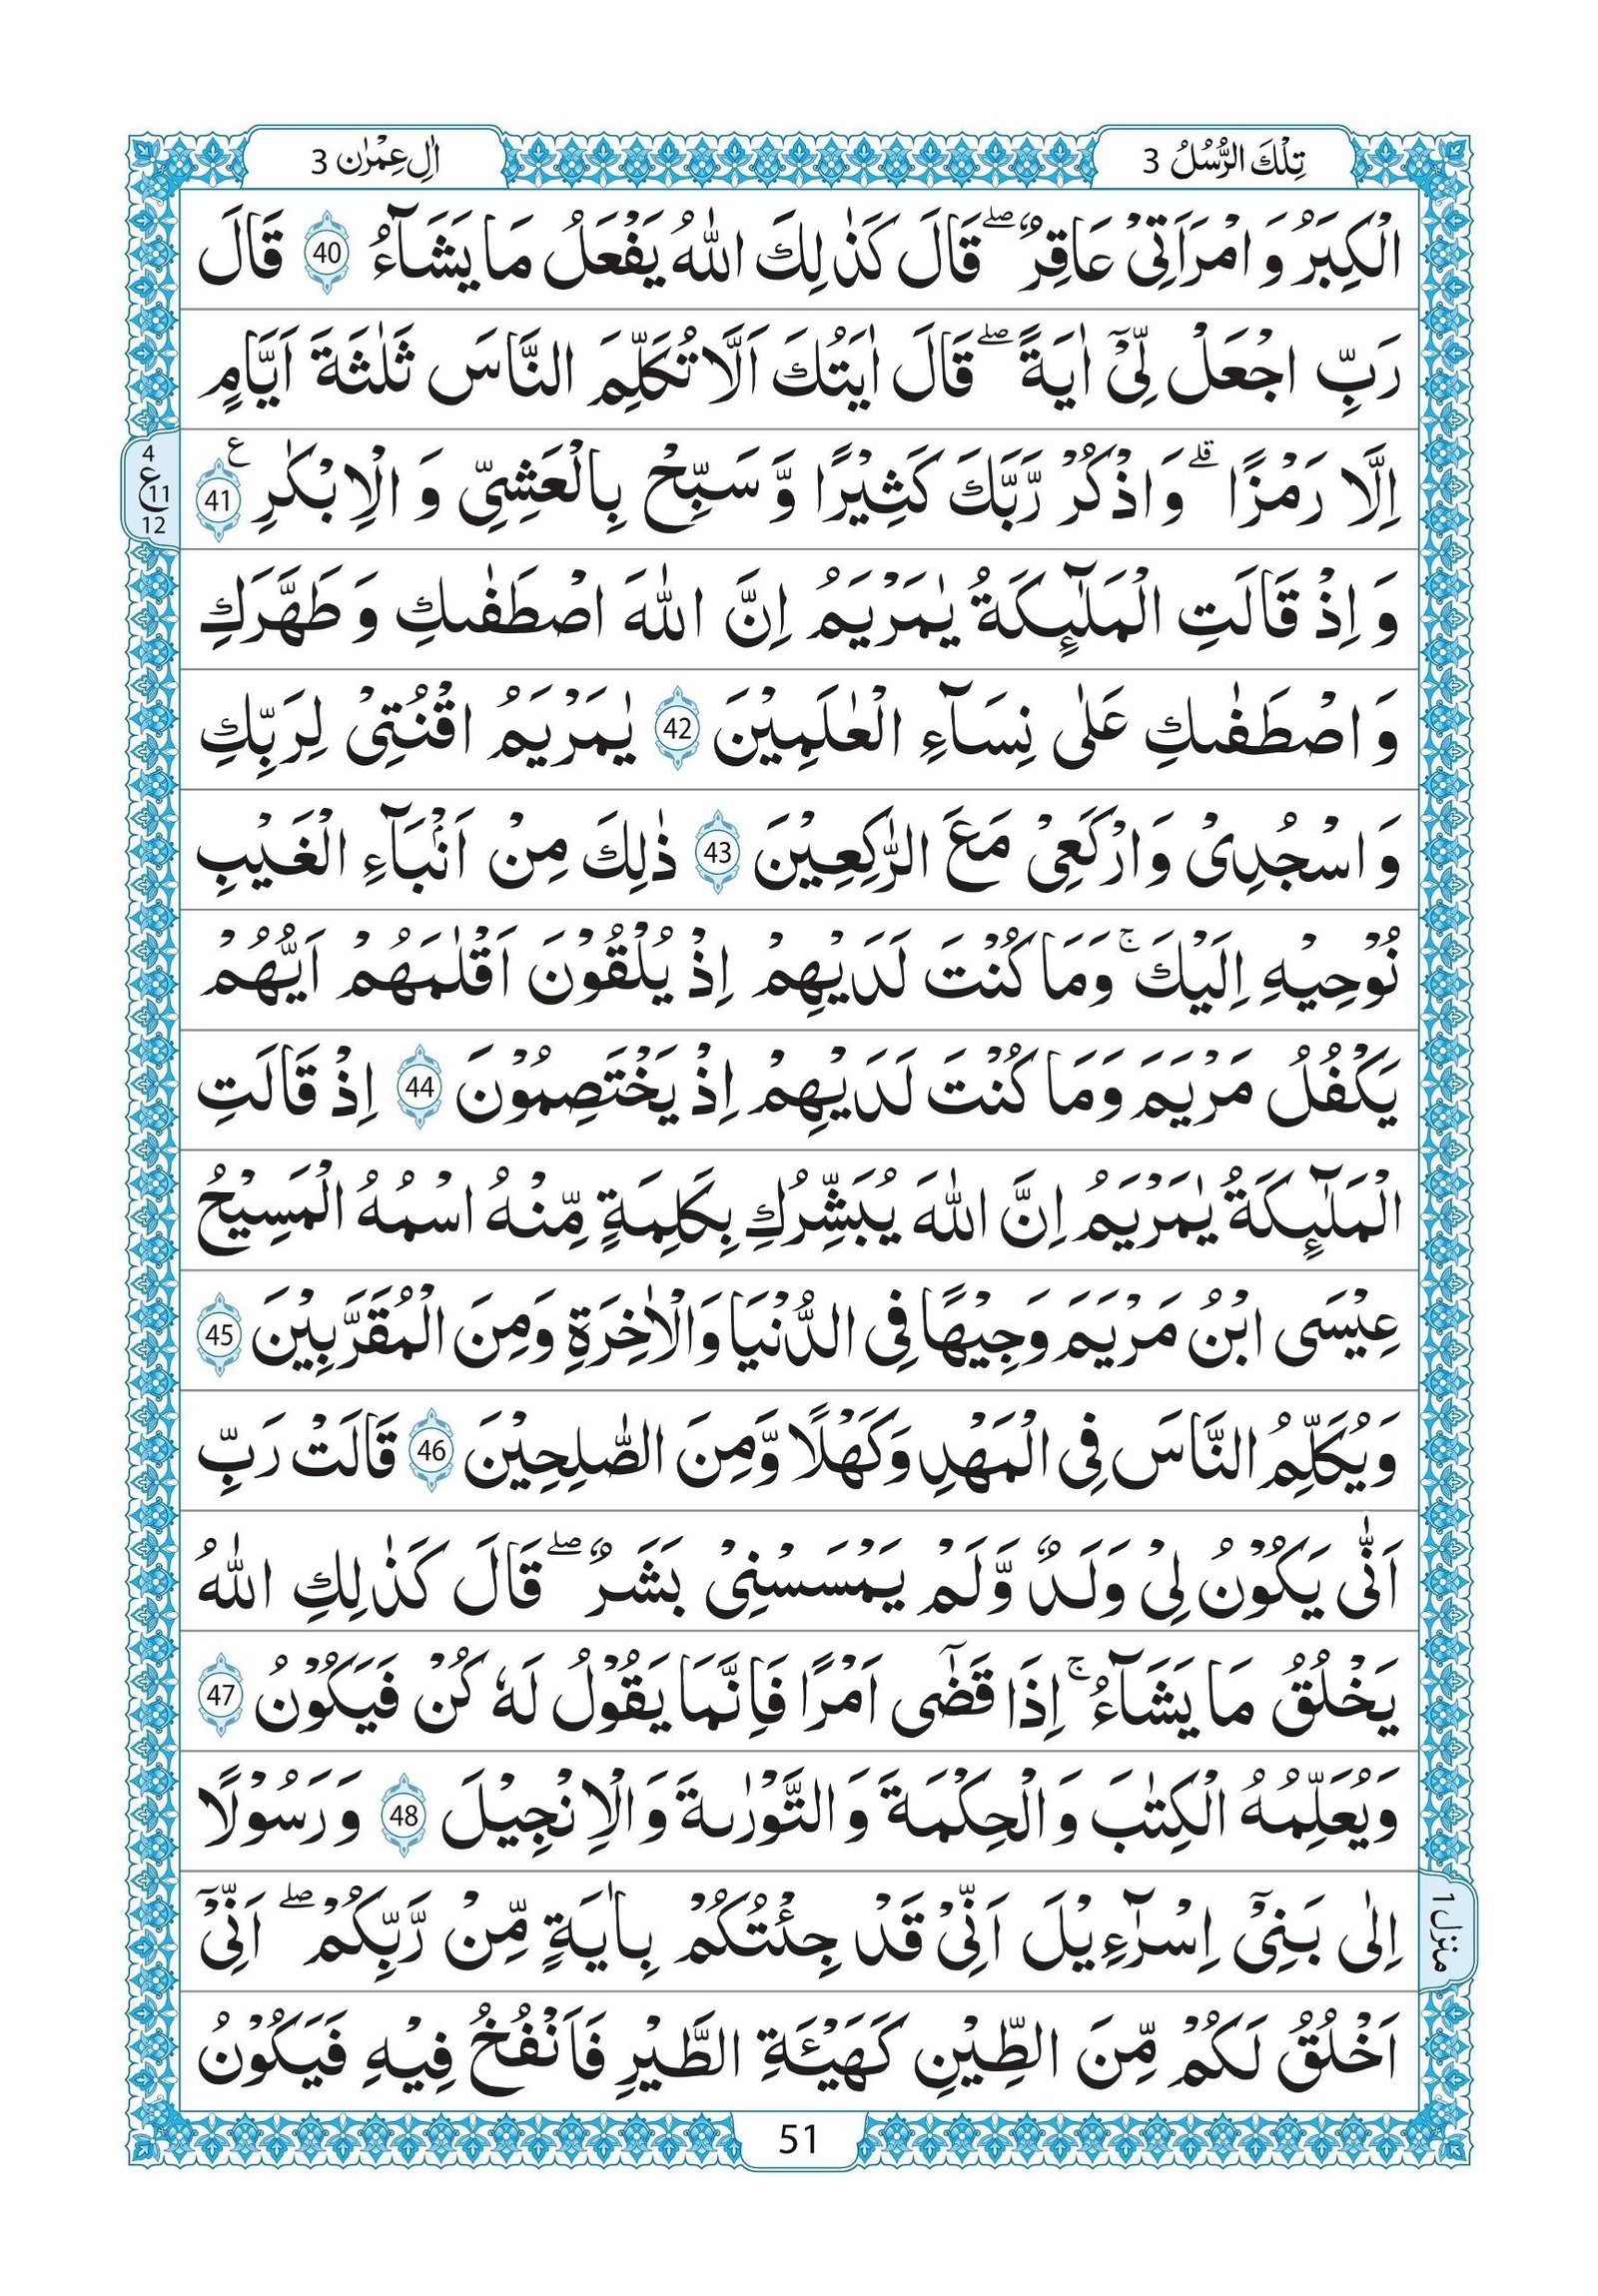 تِلْكَ الرُّسُلُ 3
اٰلِ عِمْرٰن 3
الْكِبَرُ وَ امْرَاَتِیْ عَاقِرٌ ؕۖ قَالَ كَذٰلِكَ اللّٰهُ یَفْعَلُ مَا یَشَآءُ 40 قَالَ
رَبِّ اجْعَلْ لِّیْۤ اٰیَةً ۖ قَالَ اٰیَتُكَ اَلَّا تُكَلِّمَ النَّاسَ ثَلٰثَةَ اَیَّامٍ
اِلَّا رَمْزًا ۗ وَ اذْكُرْ رَّبَّكَ كَثِیْرًا وَّ سَبِّحْ بِالْعَشِیِّ وَ الْاِبْكٰرِ 41 ع
4
ع 11
12
وَ اِذْ قَالَتِ الْمَلٰٓىِٕكَةُ یٰمَرْیَمُ اِنَّ اللّٰهَ اصْطَفٰىكِ وَ طَهَّرَكِ
وَ اصْطَفٰىكِ عَلٰی نِسَآءِ الْعٰلَمِیْنَ 42 یٰمَرْیَمُ اقْنُتِیْ لِرَبِّكِ
وَ اسْجُدِیْ وَ ارْكَعِیْ مَعَ الرّٰكِعِیْنَ 43 ذٰلِكَ مِنْ اَنْۢبَآءِ الْغَیْبِ
نُوْحِیْهِ اِلَیْكَ ۚ وَ مَا كُنْتَ لَدَیْهِمْ اِذْ یُلْقُوْنَ اَقْلٰمَهُمْ اَیُّهُمْ
یَكْفُلُ مَرْیَمَ وَ مَا كُنْتَ لَدَیْهِمْ اِذْ یَخْتَصِمُوْنَ 44 اِذْ قَالَتِ
الْمَلٰٓىِٕكَةُ یٰمَرْیَمُ اِنَّ اللّٰهَ یُبَشِّرُكِ بِكَلِمَةٍ مِّنْهُ اسْمُهُ الْمَسِیْحُ
عِیْسَی ابْنُ مَرْیَمَ وَجِیْهًا فِی الدُّنْیَا وَ الْاٰخِرَةِ وَ مِنَ الْمُقَرَّبِیْنَ 45
وَ یُكَلِّمُ النَّاسَ فِی الْمَهْدِ وَ كَهْلًا وَّ مِنَ الصّٰلِحِیْنَ 46 قَالَتْ رَبِّ
اَنّٰی یَكُوْنُ لِیْ وَلَدٌ وَّ لَمْ یَمْسَسْنِیْ بَشَرٌ ۖ قَالَ كَذٰلِكِ اللّٰهُ
یَخْلُقُ مَا یَشَآءُ ۚ اِذَا قَضٰۤی اَمْرًا فَاِنَّمَا یَقُوْلُ لَهٗ كُنْ فَیَكُوْنُ 47
وَ یُعَلِّمُهُ الْكِتٰبَ وَ الْحِكْمَةَ وَ التَّوْرٰىةَ وَ الْاِنْجِیْلَ 48 وَ رَسُوْلًا
اِلٰی بَنِیْۤ اِسْرَآءِیْلَ اَنِّیْ قَدْ جِئْتُكُمْ بِاٰیَةٍ مِّنْ رَّبِّكُمْ ۖ اَنِّیْۤ
منزل 1
اَخْلُقُ لَكُمْ مِّنَ الطِّیْنِ كَهَیْـَٔةِ الطَّیْرِ فَاَنْفُخُ فِیْهِ فَیَكُوْنُ
51